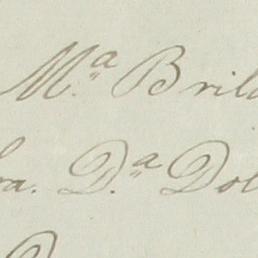 M.ª Bril
ra. D.ª Dol